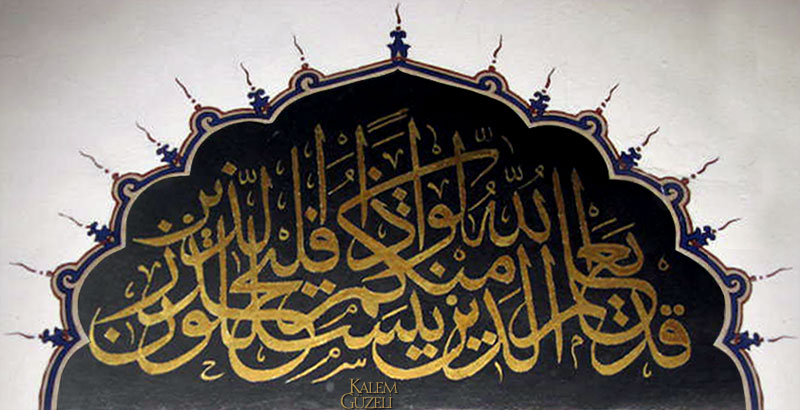 قد يعلم الله الذين يتسللون منكم لواذا فليحذر الذين
KALEM
GÜZELİ